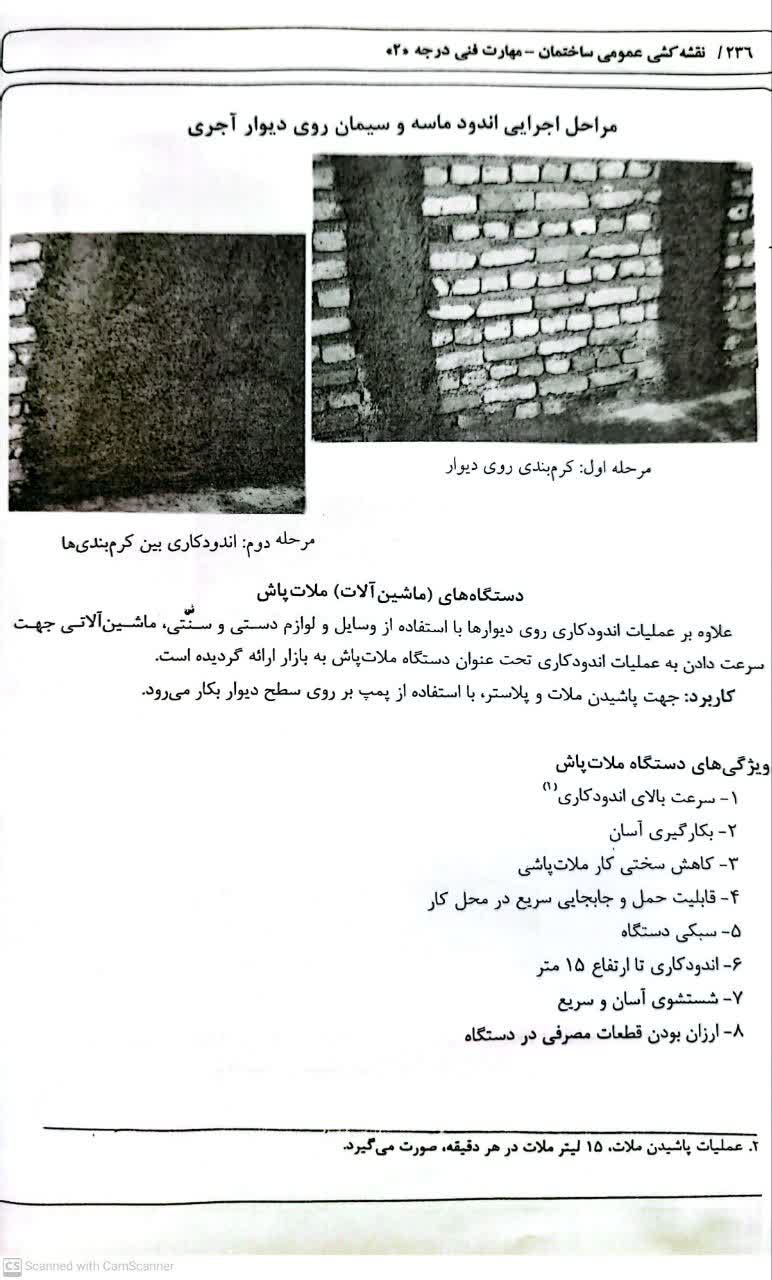 ۲۳۶ / نقشه کشی عمومی ساختمان – مهارت فنی درجه «۲»
مراحل اجرایی اندود ماسه و سیمان روی دیوار آجری
مرحله اول: کرم‌بندی روی دیوار
مرحله دوم: اندودکاری بین کرم‌بندی‌ها
دستگاه‌های (ماشین‌آلات) ملات‌پاش
علاوه بر عملیات اندودکاری روی دیوارها با استفاده از وسایل و لوازم دستی و سنّتی، ماشین‌آلاتی جهت
سرعت دادن به عملیات اندودکاری تحت عنوان دستگاه ملات‌پاش به بازار ارائه گردیده است.
کاربرد: جهت پاشیدن ملات و پلاستر، با استفاده از پمپ بر روی سطح دیوار بکار می‌رود.
ویژگی‌های دستگاه ملات‌پاش
۱- سرعت بالای اندودکاری(۱)
۲- بکارگیری آسان
۳- کاهش سختی کار ملات‌پاشی
۴- قابلیت حمل و جابجایی سریع در محل کار
۵- سبکی دستگاه
۶- اندودکاری تا ارتفاع ۱۵ متر
۷- شستشوی آسان و سریع
۸- ارزان بودن قطعات مصرفی در دستگاه
۲. عملیات پاشیدن ملات، ۱۵ لیتر ملات در هر دقیقه، صورت می‌گیرد.
CS Scanned with CamScanner